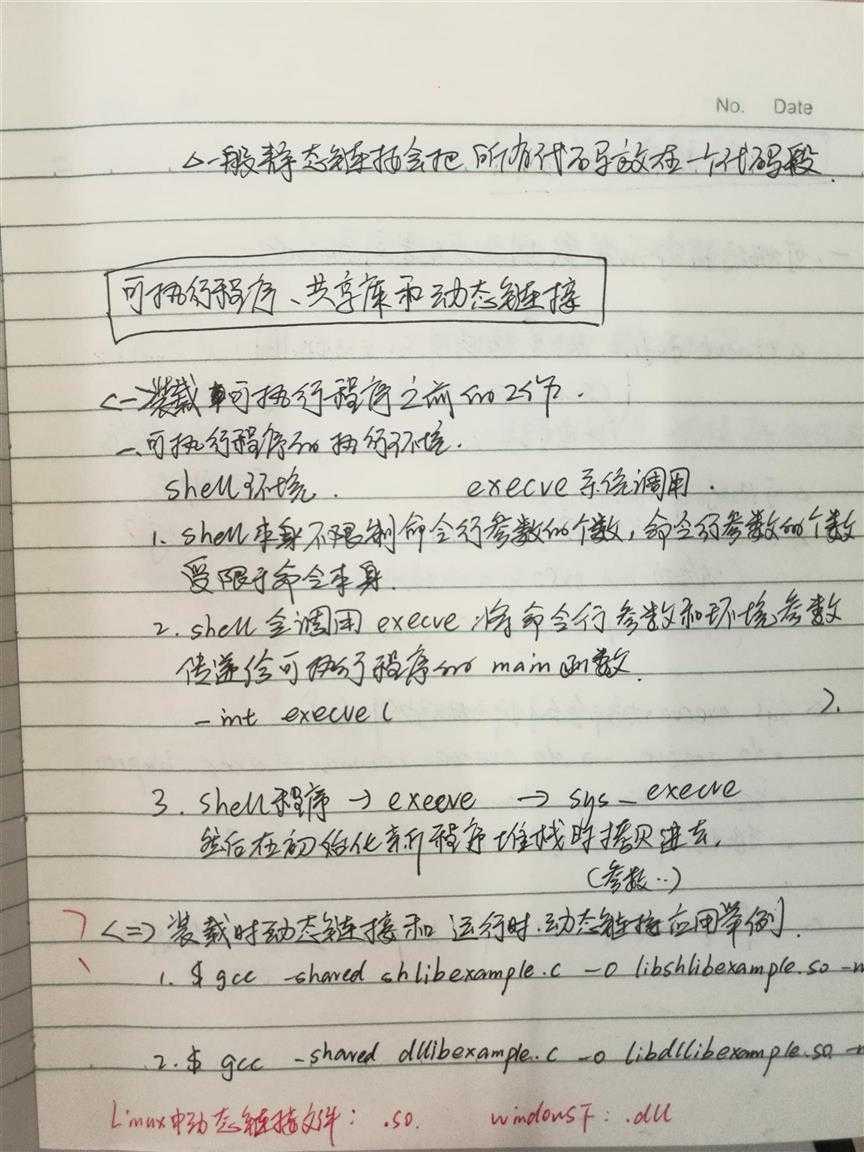 No. Date
△一般静态链接会把所有代码放在一个代码段.
可执行程序、共享库和动态链接
<一>装载可执行程序之前的工作.
一.可执行程序的执行环境.
shell环境. execve系统调用.
1. shell本身不限制命令行参数的个数,命令行参数的个数
受限于命令本身.
2. shell会调用execve将命令行参数和环境参数
传递给可执行程序的main函数.
- int execve ( ).
3. shell程序 → execve → sys_execve
然后在初始化新程序堆栈时拷贝进去.
(参数..)
<二>装载时动态链接和运行时动态链接应用举例.
1. $ gcc -shared shlibexample.c -o libshlibexample.so -m
2. $ gcc -shared dllibexample.c -o libdllibexample.so -m
Linux中动态链接文件: .so. windows下: .dll